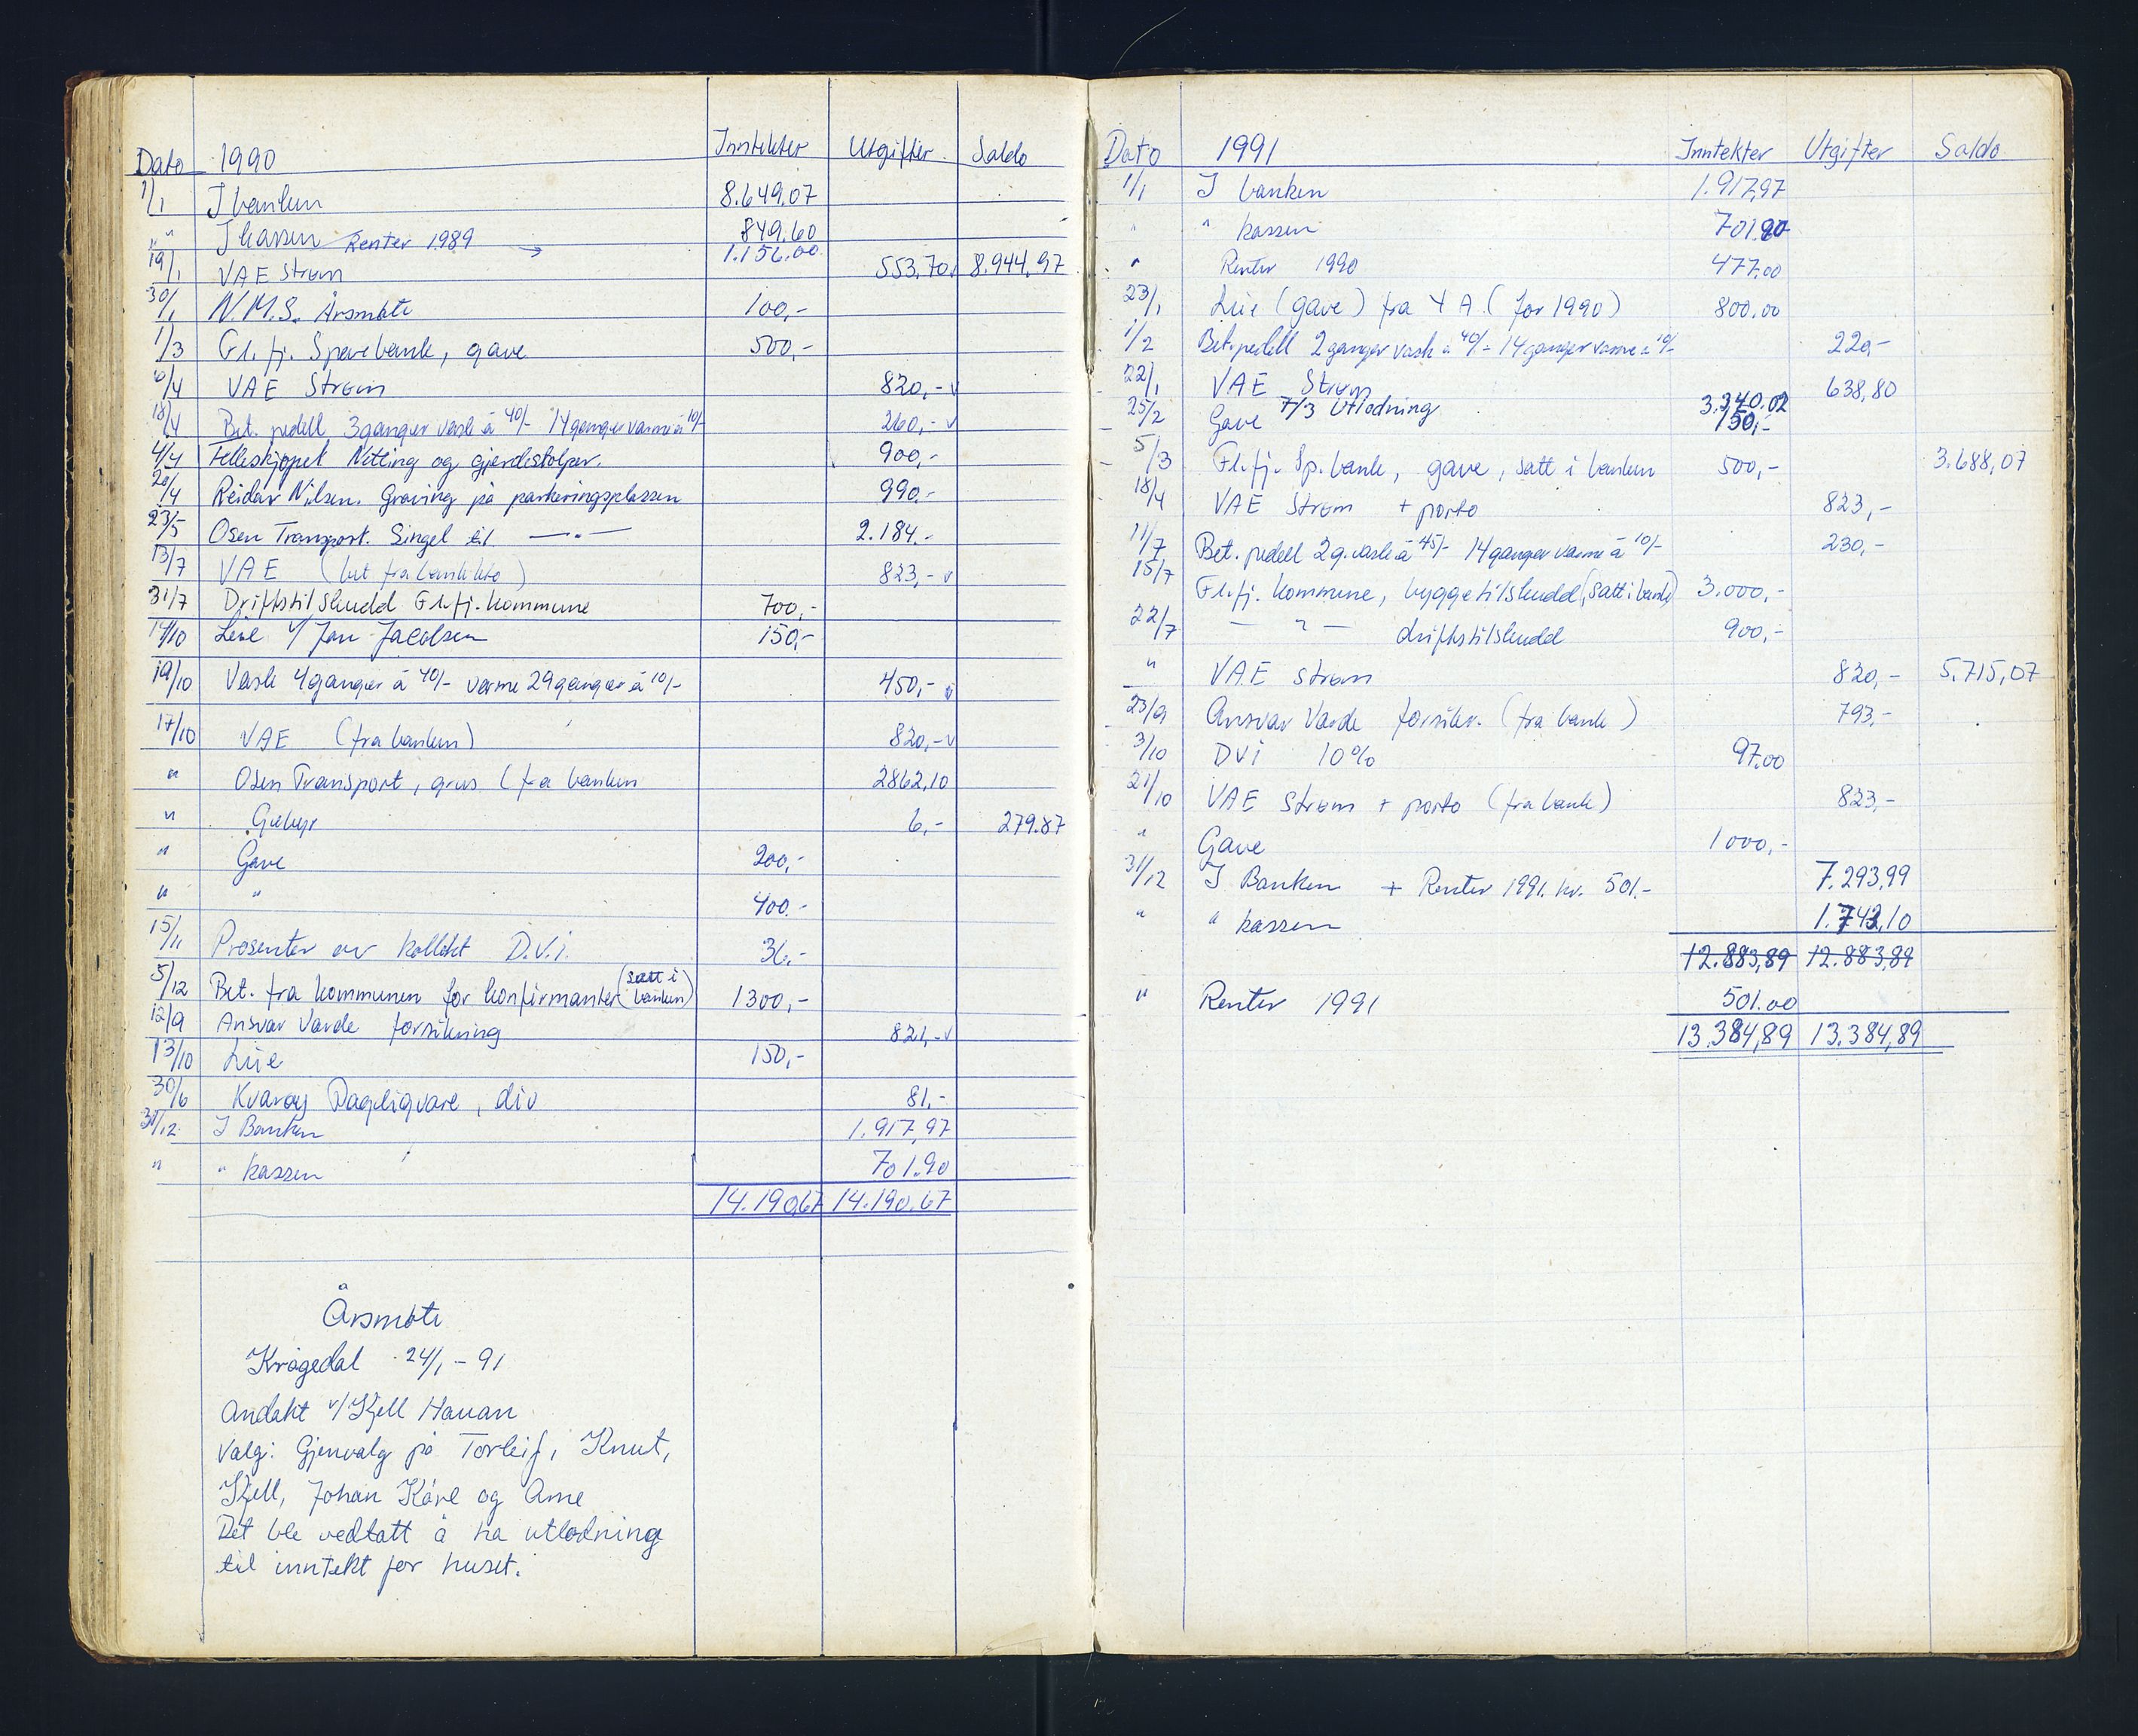 Dato 1990 Inntekter Utgifter Saldo
1/1 I banken 8.649,07
" " I kassen Renter 1989 → 849.60
1.156.00
19/1 VAE Strøm 553,70 8.944,97
30/1 N.M.S. Årsmøte 100,-
1/3 Gl. fj. Sparebank, gave 500,-
6/4 VAE Strøm 820,- v
18/4 Bet. pedell 3 ganger vask à 40/- 14 ganger varme à 10/- 260,- v
4/4 Felleskjøpet Netting og gjerdestolper. 900,-
20/4 Reidar Nilsen. Graving på parkeringsplassen 990.-
23/5 Osen Transport. Singel til —"— 2.184.-
13/7 VAE (bet fra bankkto) 823,- v
31/7 Driftstilskudd Gl.fj. kommune 700,-
14/10 Leie v/ Jan Jacobsen 150,-
19/10 Vask 4 ganger à 40/- varme 29 ganger à 10/- 450,- v
17/10 VAE (fra banken) 820,- v
" Osen Transport, grus (fra banken 2862,10
" Gebyr 6,- 279.87
" Gave 200,-
" " 400.-
15/11 Prosenter av kollekt D.V.i. 36.-
5/12 Bet. fra kommunen for konfirmanter (satt i banken) 1300,-
12/9 Ansvar Varde forsikring 821,- v
13/10 Leie 150,-
30/6 Kvarøy Dagligvare, div 81,-
31/12. I Banken 1.917,97
" " kassen 701.90
14.190,67 14.190,67
Årsmøte
Krågedal 24/1 - 91
Andakt v/ Kjell Hauan
Valg: Gjenvalg på Torleif, Knut,
Kjell, Johan Kåre og Arne
Det ble vedtatt å ha utlodning
til inntekt for huset.
Dato 1991 Inntekter Utgifter Saldo
1/1 I banken 1.917,97
" " kassen 701.90
" Renter 1990 477,00
23/1 Leie (gave) fra 4 A (for 1990) 800.00
1/2 Bet. pedell 2 ganger vask à 40/- 14 ganger varme à 10/- 220,-
22/1 VAE Strøm 638,80
7/3 Utlodning 3.340.02
25/2 Gave 150,-
5/3 Gl.fj. Sp.bank, gave, satt i banken 500,- 3.688,07
18/4 VAE Strøm + porto 823,-
11/7 Bet. pedell 2 g. vask à 45/- 14 ganger varme à 10/- 230,-
15/7 Gl.fj. kommune, byggetilskudd (satt i bank) 3.000,-
22/7 — " — driftstilskudd 900,-
" VAE strøm 820,- 5.715,07
23/9 Ansvar Varde forsikr. (fra bank) 793,-
3/10 DVi 10% 97.00
21/10 VAE Strøm + porto (fra bank) 823,-
" Gave 1000,-
31/12 I Banken + Renter 1991. kr. 501.- 7.293,99
" " kassen 1.743,10
12.883,89 12.883,89
" Renter 1991 501.00
13.384,89 13.384,89